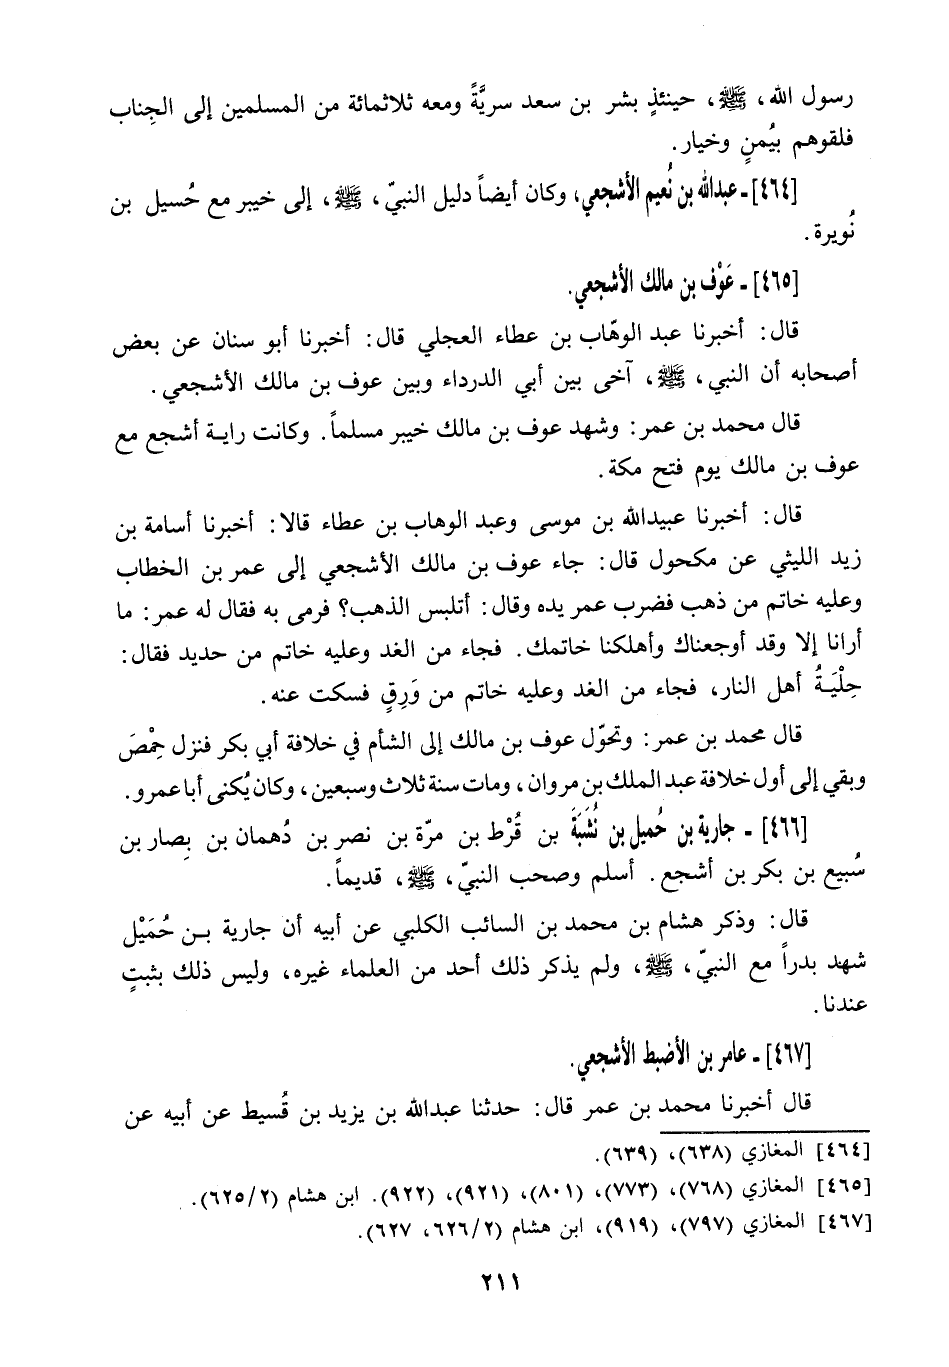 رسول الله، ﷺ، حينئذٍ بشر بن سعد سريَّةً ومعه ثلاثمائة من المسلمين إلى الجِناب
فلقوهم بيُمنٍ وخيار.
[٤٦٤] ـ عبدالله بن نُعيم الأشجعي، وكان أيضاً دليل النبيّ، ﷺ، إلى خيبر مع حُسيل بن
نُويرة.
[٤٦٥] ـ عَوْف بن مالك الأشجعي.
قال: أخبرنا عبد الوهّاب بن عطاء العجلي قال: أخبرنا أبو سنان عن بعض
أصحابه أن النبي، ﷺ، آخى بين أبي الدرداء وبين عوف بن مالك الأشجعي.
قال محمد بن عمر: وشهد عوف بن مالك خيبر مسلماً. وكانت راية أشجع مع
عوف بن مالك يوم فتح مكة.
قال: أخبرنا عبيدالله بن موسى وعبد الوهاب بن عطاء قالا: أخبرنا أسامة بن
زيد الليثي عن مكحول قال: جاء عوف بن مالك الأشجعي إلى عمر بن الخطاب
وعليه خاتم من ذهب فضرب عمر يده وقال: أتلبس الذهب؟ فرمى به فقال له عمر: ما
أرانا إلا وقد أوجعناك وأهلكنا خاتمك. فجاء من الغد وعليه خاتم من حديد فقال:
حِلْيَةُ أهل النار، فجاء من الغد وعليه خاتم من وَرِقٍ فسكت عنه.
قال محمد بن عمر: وتحوّل عوف بن مالك إلى الشأم في خلافة أبي بكر فنزل حِمْصَ
وبقي إلى أول خلافة عبد الملك بن مروان، ومات سنة ثلاث وسبعين، وكان يُكنى أبا عمرو.
[٤٦٦] ـ جارية بن حُميل بن نُشَبَةَ بن قُرْط بن مرّة بن نصر بن دُهمان بن بِصار بن
سُبيع بن بكر بن أشجع. أسلم وصحب النبيّ، ﷺ، قديماً.
قال: وذكر هشام بن محمد بن السائب الكلبي عن أبيه أن جارية بن حُمَيْل
شهد بدراً مع النبيّ، ﷺ، ولم يذكر ذلك أحد من العلماء غيره، وليس ذلك بثبتٍ
عندنا.
[٤٦٧] ـ عامر بن الأضبط الأشجعي.
قال أخبرنا محمد بن عمر قال: حدثنا عبدالله بن يزيد بن قُسيط عن أبيه عن
[٤٦٤] المغازي (٦٣٨)، (٦٣٩).
[٤٦٥] المغازي (٧٦٨)، (٧٧٣)، (٨٠١)، (٩٢١)، (٩٢٢). ابن هشام (٦٢٥/٢).
[٤٦٧] المغازي (٧٩٧)، (٩١٩)، ابن هشام (٦٢٦/٢، ٦٢٧).
٢١١